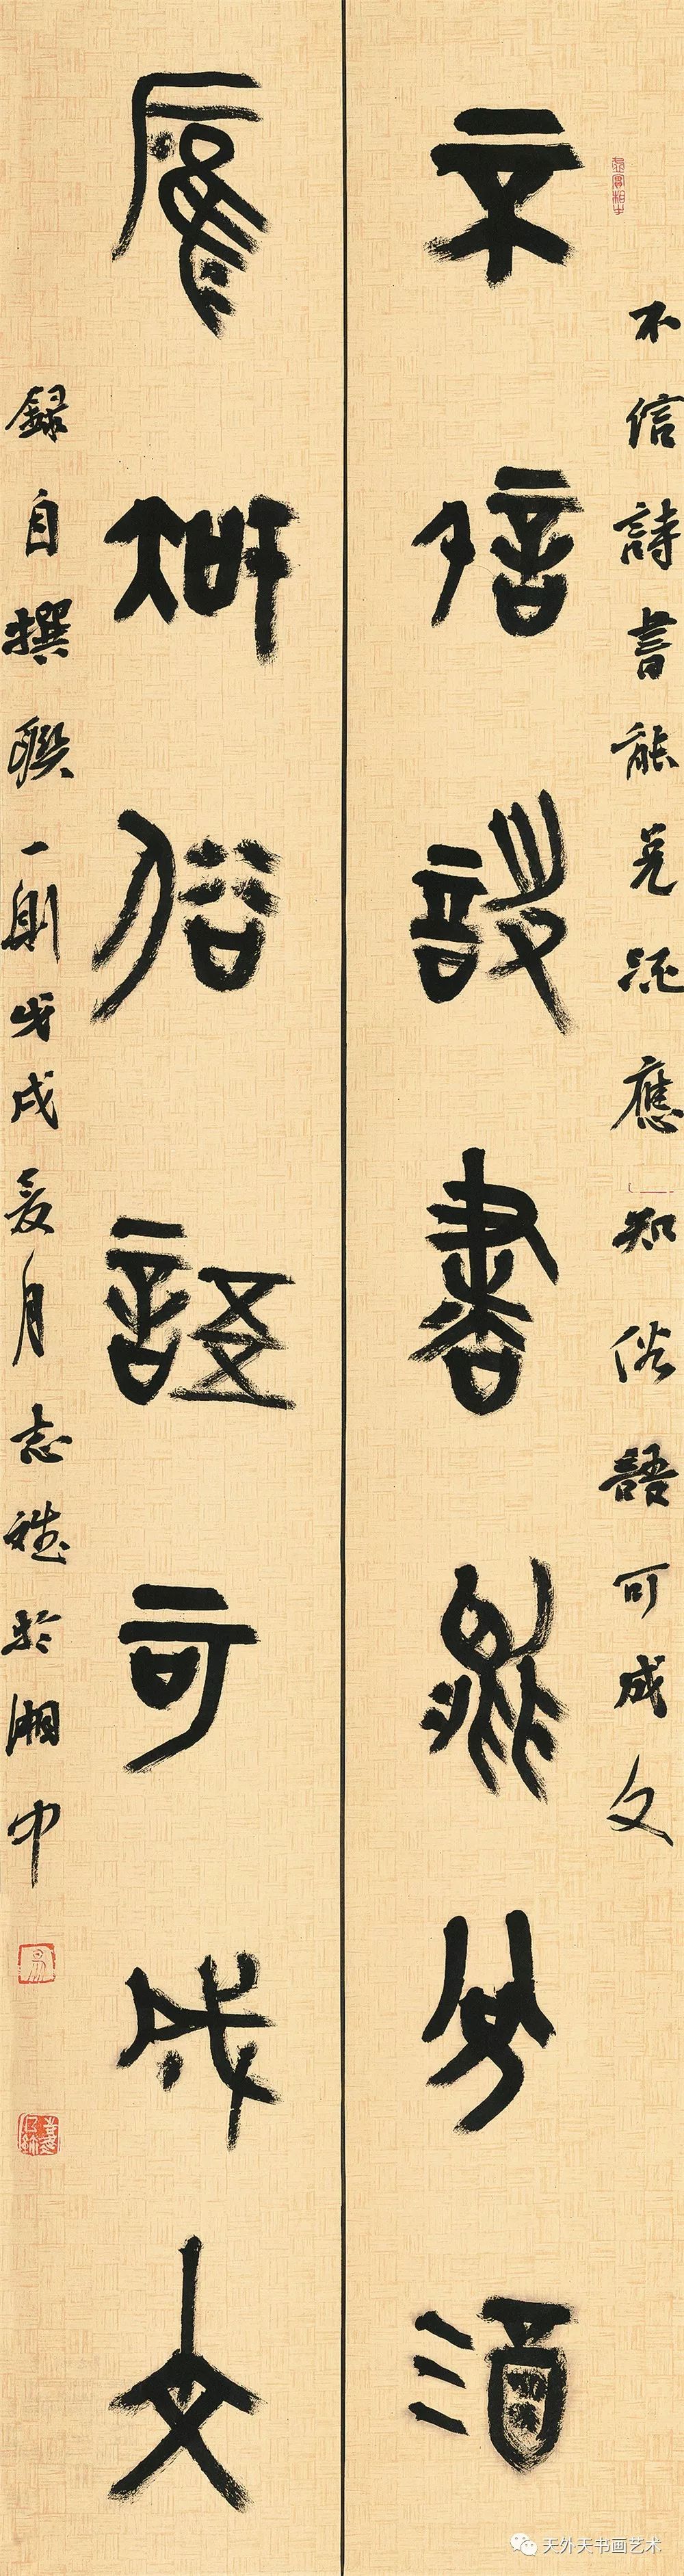 不信詩書能免酒應知俗語可成文
不信詩書能免酒
應知俗語可成文
錄自撰聯一則戊戌夏月志於湘中
天外天书画艺术